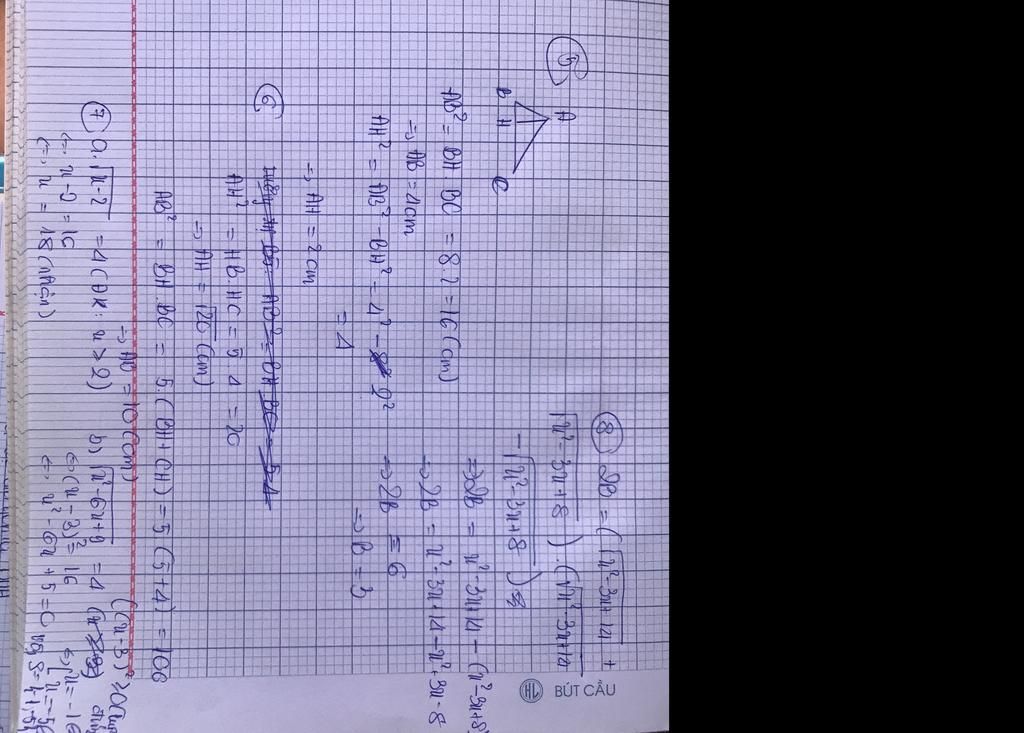 5
A
B H C
AB² = BH.BC = 8.2 = 16 (cm)
=> AB = 4cm
AH² = AB² - BH² = 4² - 2²
= 4
=> AH = 2cm
6
AH² = HB.HC = 5.4 = 20
=> AH = √20 (cm)
AB² = BH.BC = 5.(BH+CH) = 5(5+4) = 106
=> AB = 10 (cm)
7 a. √x-2 = 4 (ĐK: x > 2)
<=> x-2 = 16
<=> x = 18 (nhận)
b) √x²-6x+9 = 4
((x-3)² ≥ 0
<=> (x-3)² = 16
<=> x²-6x+5=0
8 2B = (√x²-3x+14 +
√x²-3x+8).(√x²-3x+14
-√x²-3x+8)
=> 2B = x²-3x+14-(x²-3x+8)
=> 2B = x²-3x+14-x²+3x-8
=> 2B = 6
=> B = 3
BÚT CẦU